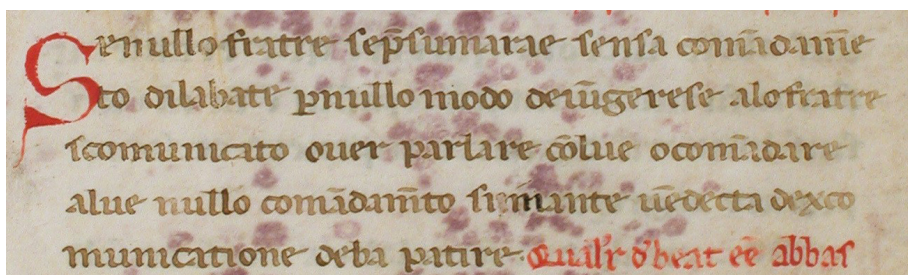 Se nullo fratre sep̄sumarae sensa comādam̄e
to dilabate ꝑnullo modo deiūgerese alo fratre
scomunicato ouer parlare cōlue o comādare
alue nullo comādam̄to simiante uēdecta dexco
municatione deba patire Qualr̄ d̄beat eē abbas